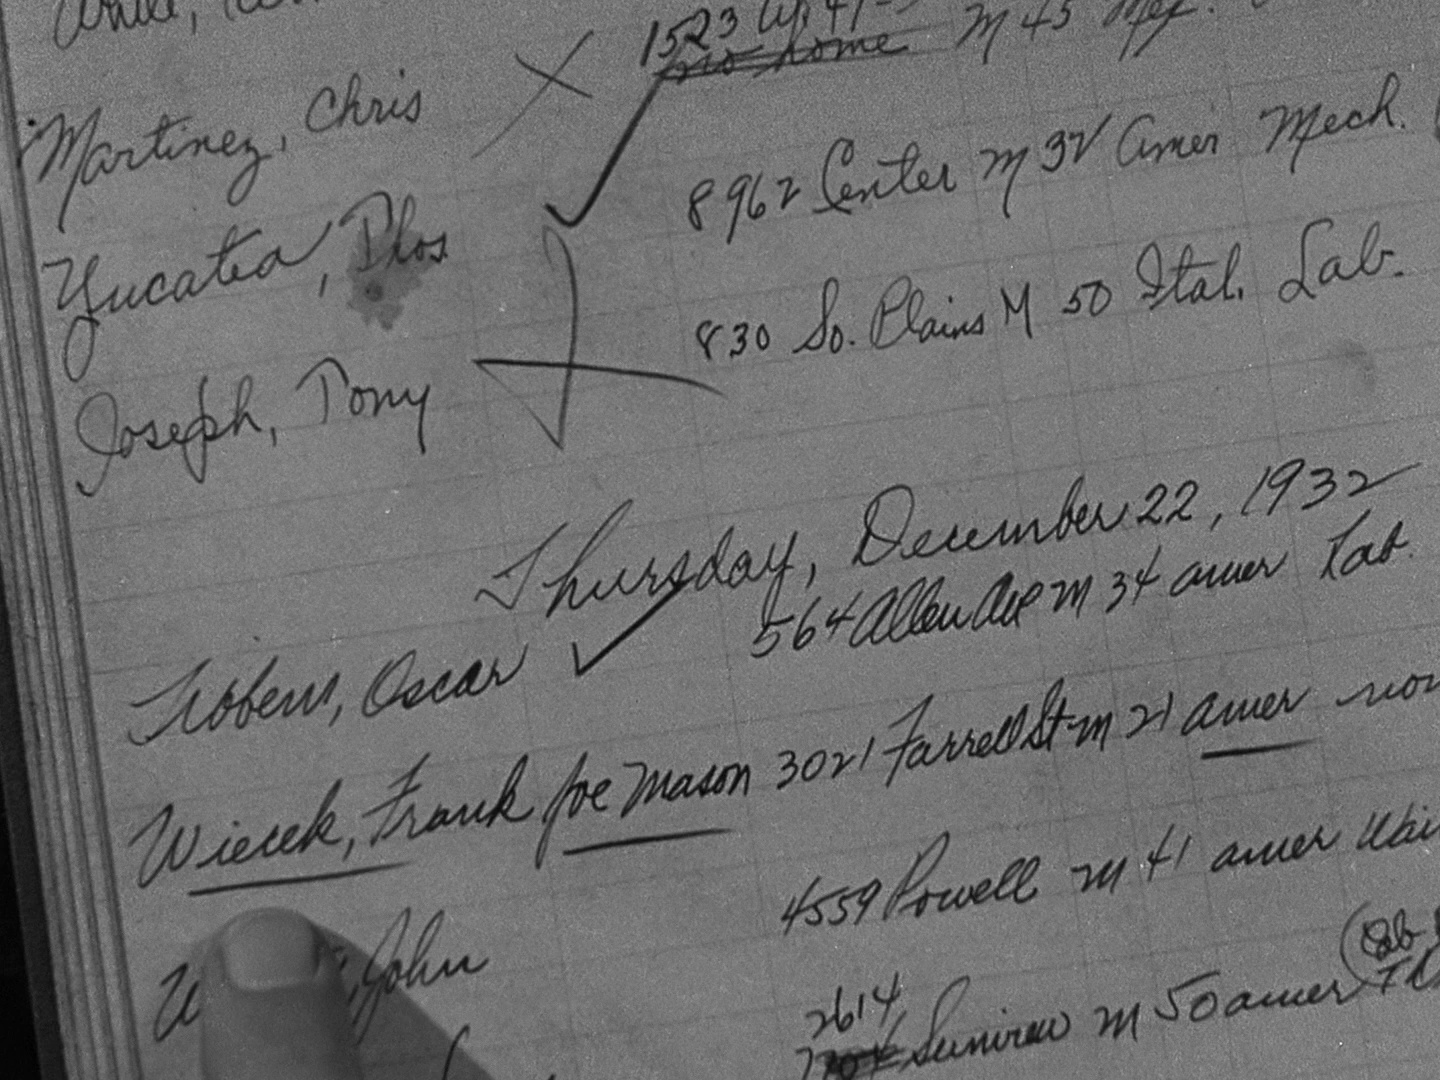 1523
no home M 45 Mex.
Martinez, Chris
8962 Center M 32 Amer Mech.
Yucatea, Dlos
830 So. Plains M 50 Ital. Lab.
Joseph, Tony
Thursday, December 22, 1932
Oscar 564 Allen Ave M 34 Amer Lab.
Wiecek, Frank Joe Mason 3021 Farrell St M 21 Amer
John 4559 Powell M 41 Amer
2614
M 50 Amer